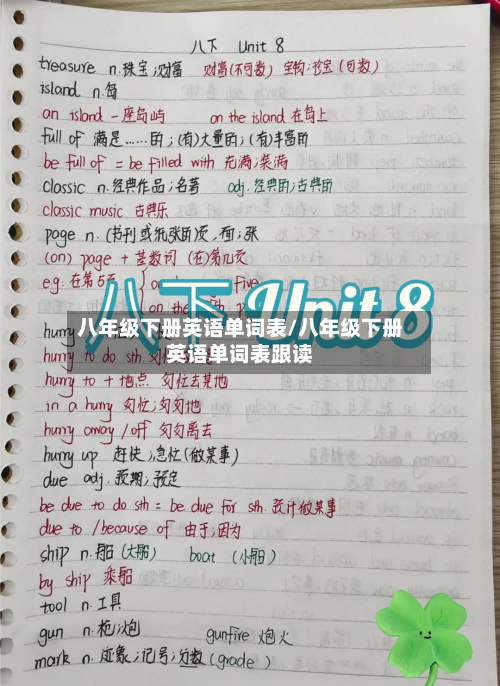 八下 Unit 8
treasure n.珠宝;财富 财富(不可数) 宝物;珍宝(可数)
island n.岛
an island 一座岛屿 on the island 在岛上
full of 满是……的;(有)大量的;(有)丰富的
be full of = be filled with 充满;装满
classic n.经典作品;名著 adj.经典的;古典的
classic music 古典乐
page n.(书刊或纸张的)页,面;张
(on) page + 基数词 (在)第几页
e.g. 在第5页
five
on the
八下 Unit 8
八年级下册英语单词表/八年级下册
英语单词表跟读
hurry
to do sth.
hurry to + 地点 匆忙去某地
in a hurry 匆忙;匆匆地
hurry away / off 匆匆离去
hurry up 赶快;急忙(做某事)
due adj.预期;预定
be due to do sth = be due for sth.预计做某事
due to / because of 由于;因为
ship n.船(大船) boat (小船)
by ship 乘船
tool n.工具
gun n.枪;炮 gunfire 炮火
mark n.迹象;记号;分数(grade)